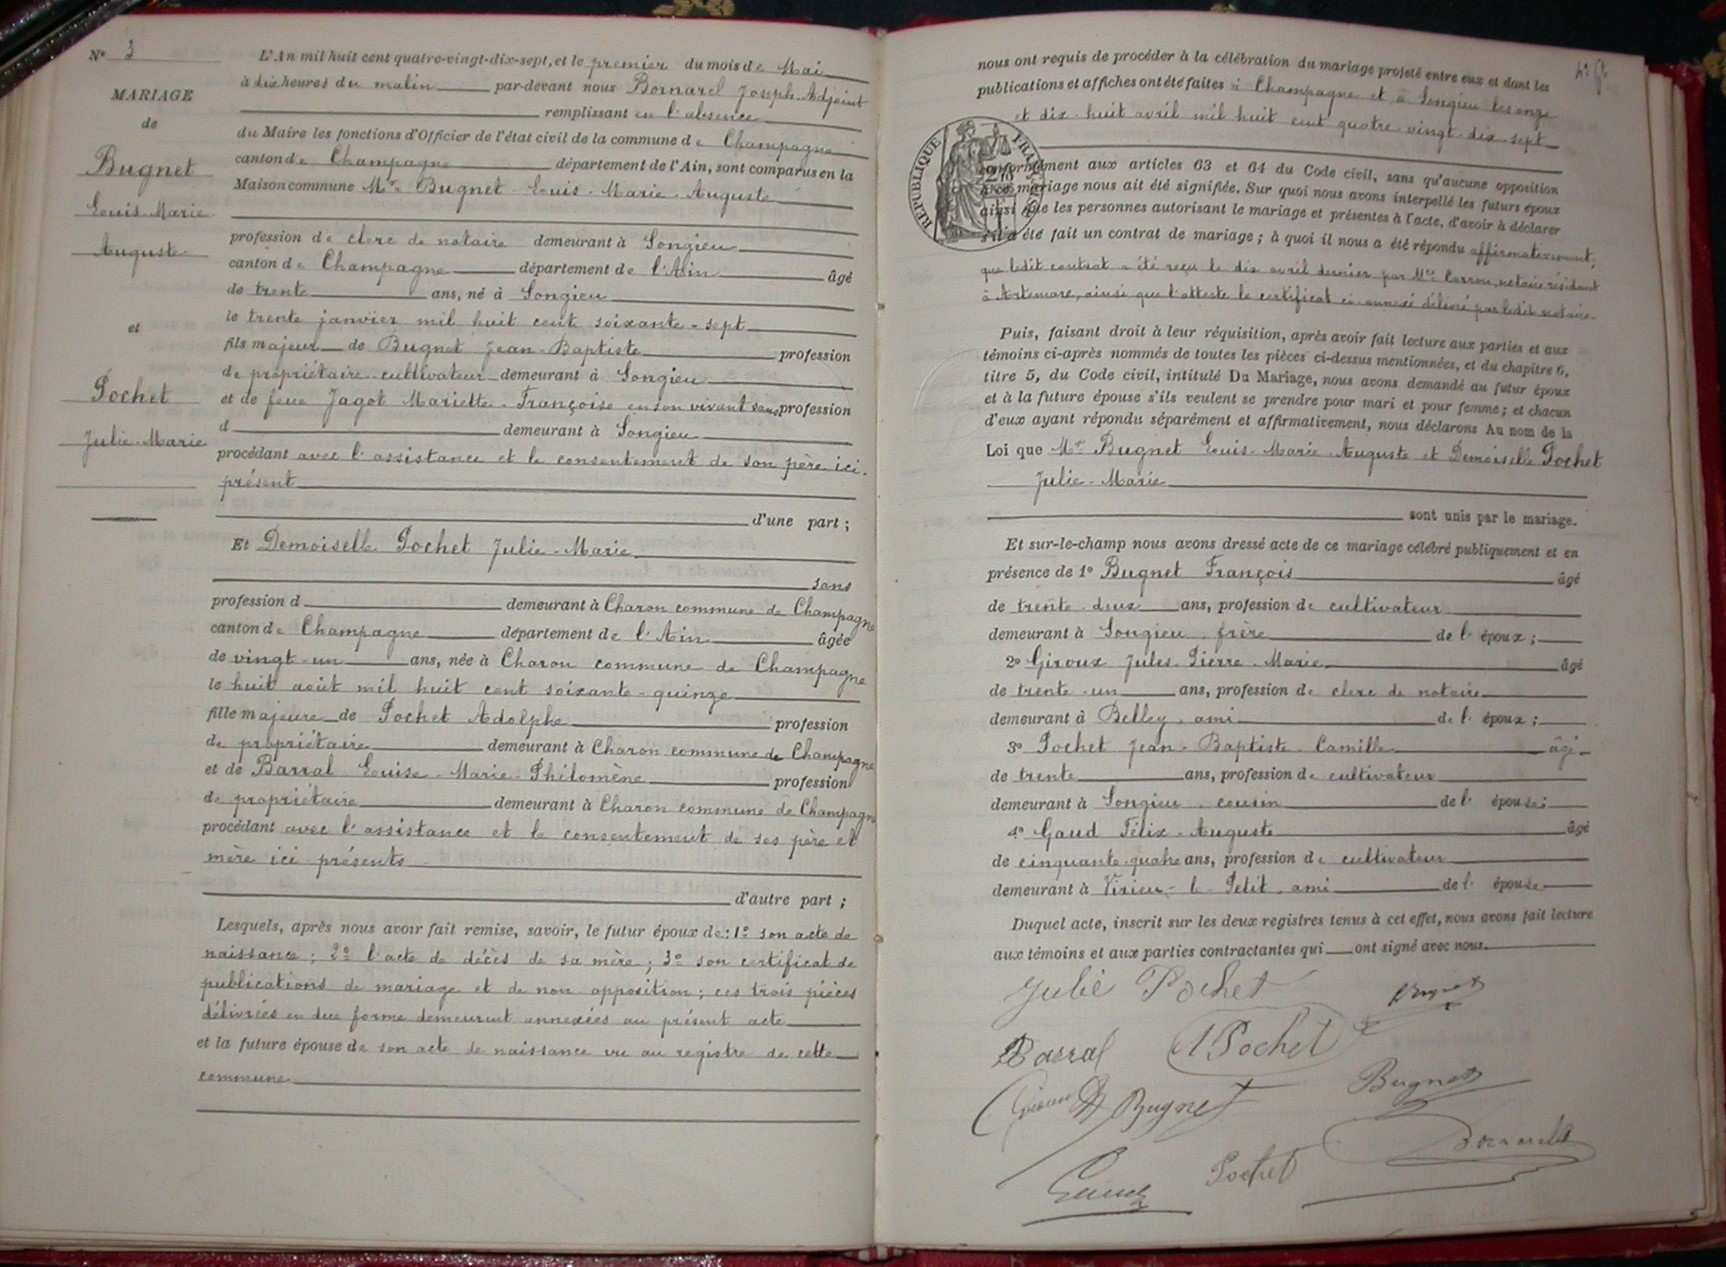 N° 3
MARIAGE
de
Bugnet
Louis-Marie
Auguste
et
Pochet
Julie-Marie
L'An mil huit cent quatre-vingt-dix-sept, et le premier du mois de Mai
à dix heures du matin par-devant nous Bornarel Joseph Adjoint
remplissant en l'absence
du Maire les fonctions d'Officier de l'état civil de la commune de Champagne
canton de Champagne département de l'Ain, sont comparus en la
Maison commune Mr Bugnet Louis-Marie-Auguste
profession de clerc de notaire demeurant à Songieu
canton de Champagne département de l'Ain âgé
de trente ans, né à Songieu
le trente janvier mil huit cent soixante-sept
fils majeur de Bugnet Jean-Baptiste profession
de propriétaire-cultivateur demeurant à Songieu
et de feue Jagot Mariette-Françoise en son vivant sans profession
d demeurant à Songieu
procédant avec l'assistance et le consentement de son père ici
présent
d'une part ;
Et Demoiselle Pochet Julie-Marie
sans
profession d demeurant à Charon commune de Champagne
canton de Champagne département de l'Ain âgée
de vingt-un ans, née à Charon commune de Champagne
le huit août mil huit cent soixante-quinze
fille majeure de Pochet Adolphe profession
de propriétaire demeurant à Charon commune de Champagne
et de Barral Louise-Marie-Philomène profession
de propriétaire demeurant à Charon commune de Champagne
procédant avec l'assistance et le consentement de ses père et
mère ici présents
d'autre part ;
Lesquels, après nous avoir fait remise, savoir, le futur époux de : 1° son acte de
naissance ; 2° l'acte de décès de sa mère ; 3° son certificat de
publications de mariage et de non opposition ; ces trois pièces
délivrées en due forme demeurent annexées au présent acte
et la future épouse de son acte de naissance vu au registre de cette
commune
nous ont requis de procéder à la célébration du mariage projeté entre eux et dont les
publications et affiches ont été faites à Champagne et à Songieu les onze
et dix-huit avril mil huit cent quatre-vingt-dix-sept
RÉPUBLIQUE FRANÇAISE
conformément aux articles 63 et 64 du Code civil, sans qu'aucune opposition
à ce mariage nous ait été signifiée. Sur quoi nous avons interpellé les futurs époux
ainsi que les personnes autorisant le mariage et présentes à l'acte, d'avoir à déclarer
s'il a été fait un contrat de mariage ; à quoi il nous a été répondu affirmativement,
que ledit contrat a été reçu le dix avril dernier par Me Carron, notaire résidant
à Artemare, ainsi que l'atteste le certificat ci-annexé délivré par ledit notaire.
Puis, faisant droit à leur réquisition, après avoir fait lecture aux parties et aux
témoins ci-après nommés de toutes les pièces ci-dessus mentionnées, et du chapitre 6,
titre 5, du Code civil, intitulé Du Mariage, nous avons demandé au futur époux
et à la future épouse s'ils veulent se prendre pour mari et pour femme ; et chacun
d'eux ayant répondu séparément et affirmativement, nous déclarons Au nom de la
Loi que Mr Bugnet Louis-Marie-Auguste et Demoiselle Pochet
Julie-Marie
sont unis par le mariage.
Et sur-le-champ nous avons dressé acte de ce mariage célébré publiquement et en
présence de 1° Bugnet François âgé
de trente-deux ans, profession de cultivateur
demeurant à Songieu, frère de l'époux ;
2° Giroux Jules-Pierre-Marie âgé
de trente-un ans, profession de clerc de notaire
demeurant à Belley, ami de l'époux ;
3° Pochet Jean-Baptiste-Camille âgé
de trente ans, profession de cultivateur
demeurant à Songieu, cousin de l'épouse ;
4° Gaud Félix-Auguste âgé
de cinquante-quatre ans, profession de cultivateur
demeurant à Virieu-le-Petit, ami de l'épouse
Duquel acte, inscrit sur les deux registres tenus à cet effet, nous avons fait lecture
aux témoins et aux parties contractantes qui ont signé avec nous.
Julie Pochet Bugnet
Barral A Pochet
Giroux Bugnet Bugnet
Pochet Bornarel